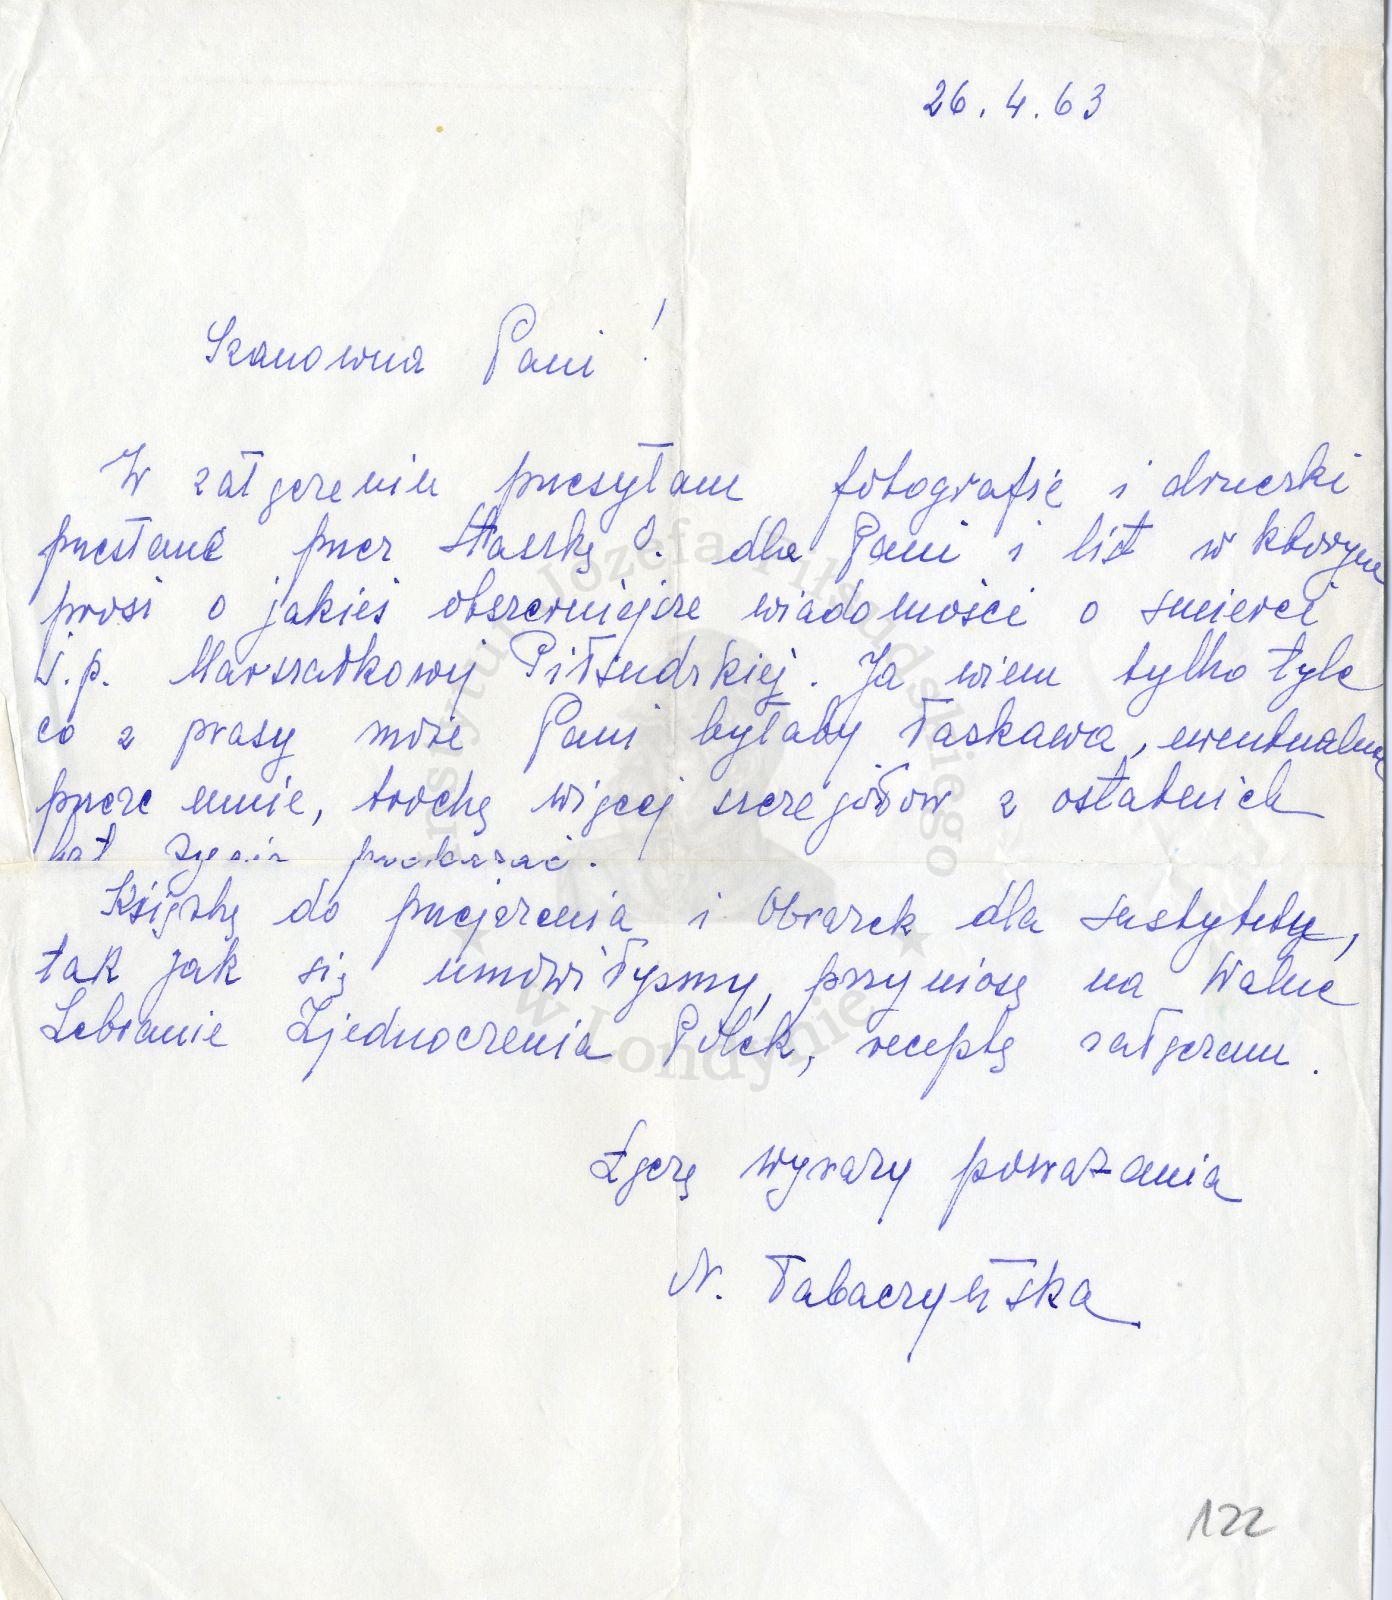 26.4.63
Szanowna Pani!
W załączeniu przesyłam fotografię i druczki
przesłane przez Staszkę O. dla Pani i list w którym
prosi o jakieś obszerniejsze wiadomości o śmierci
ś.p. Marszałkowej Piłsudzkiej. Ja wiem tylko tyle
co z prasy może Pani byłaby łaskawa, ewentualnie
przeze mnie, trochę więcej szczegółów z ostatnich
lat życia przekazać.
Książkę do przejrzenia i Obrazek dla Instytutu,
tak jak się umówiłyśmy, przyniosę na Walne
Zebranie Zjednoczenia Polek, receptę załączam.
Łączę wyrazy poważania
N. Tabaczyńska
122
Instytut Józefa Piłsudskiego
w Londynie